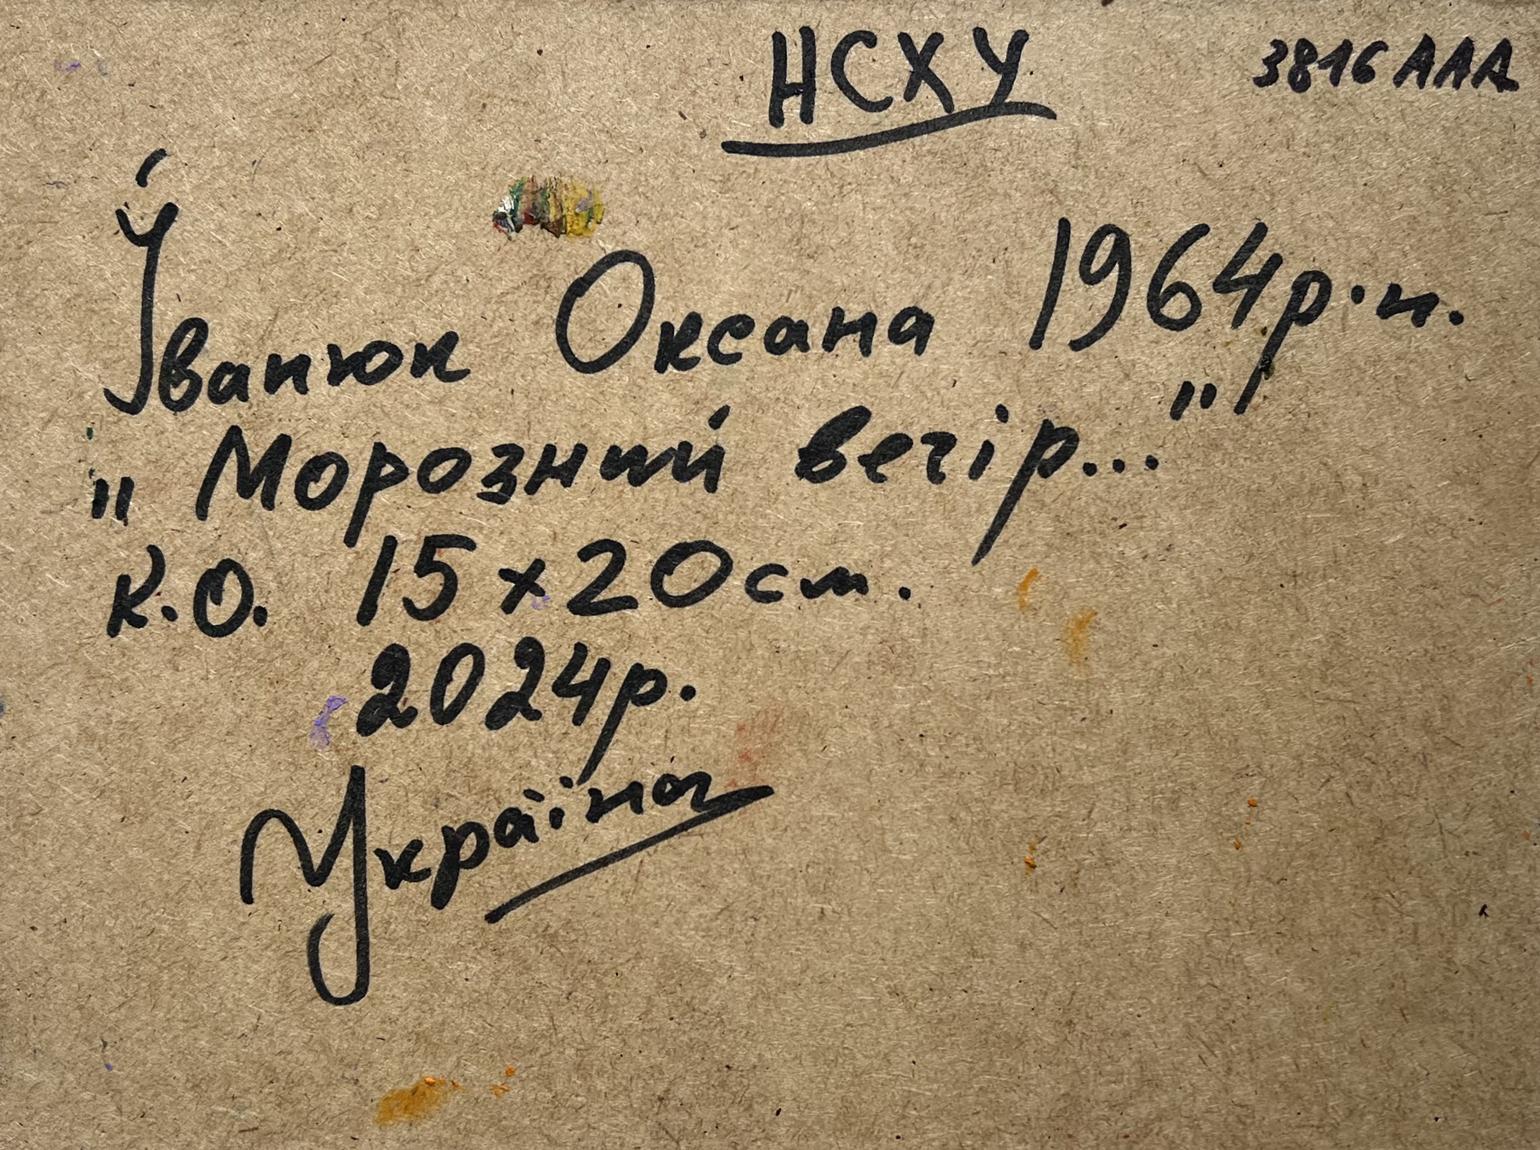 НСХУ
3816 ААА
Іванюк Оксана 1964р.н.
"Морозний вечір..."
К.О. 15×20см.
2024р.
Україна